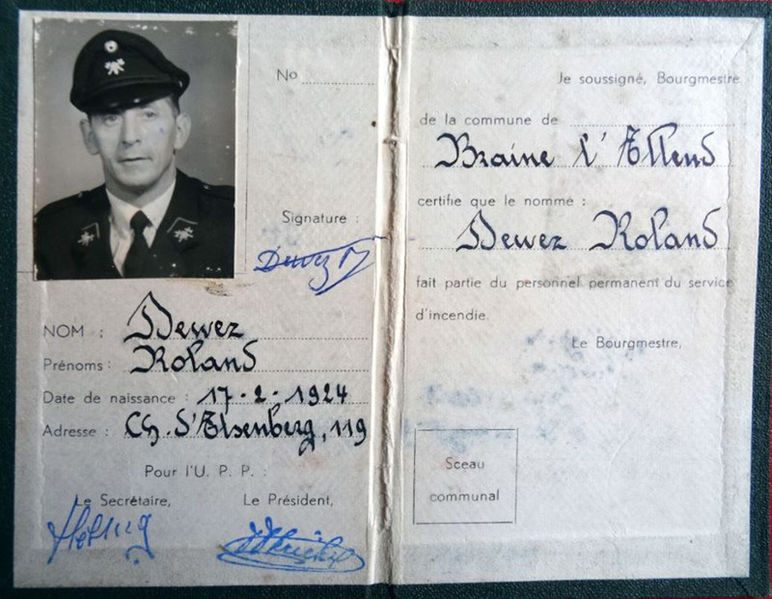 No
Signature :
Dewez R
NOM : Dewez
Prénoms : Roland
Date de naissance : 17-2-1924
Adresse : Ch. d'Alsenberg, 119
Pour l'U. P. P. :
Le Secrétaire, Le Président,
Je soussigné, Bourgmestre
de la commune de
Braine l'Allend
certifie que le nommé :
Dewez Roland
fait partie du personnel permanent du service
d'incendie.
Le Bourgmestre,
Sceau
communal